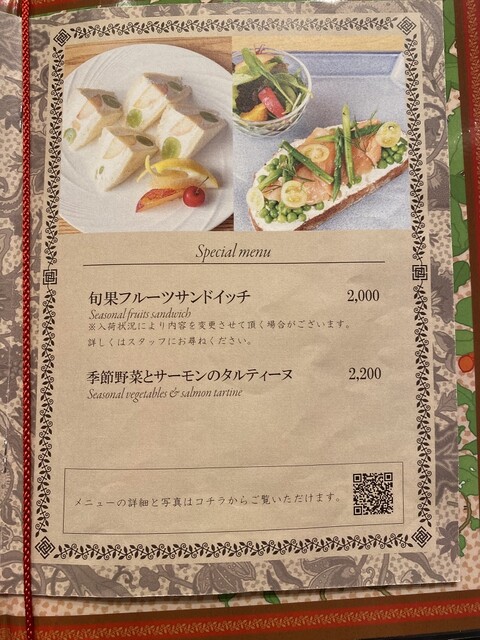 Special menu
旬果フルーツサンドイッチ 2,000
Seasonal fruits sandwich
※入荷状況により内容を変更させて頂く場合がございます。
詳しくはスタッフにお尋ねください。
季節野菜とサーモンのタルティーヌ 2,200
Seasonal vegetables & salmon tartine
メニューの詳細と写真はコチラからご覧いただけます。